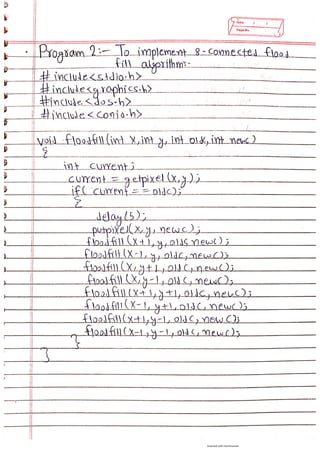 Program 2:- To implement 8-connected flood
fill algorithm:-
# include<stdio.h>
# include<graphics.h>
#include<dos.h>
#include<conio.h>
void floodfill(int x,int y, int oldc,int newc)
{
int current;
current = getpixel(x,y);
if( current == oldc);
{
delay(5);
putpixel(x,y, newc);
floodfill(x+1,y,oldc,newc);
floodfill(x-1, y, oldc,newc);
floodfill(x,y+1,oldc,newc);
floodfill(x,y-1,oldc,newc);
floodfill(x+1,y+1,oldc,newc);
floodfill(x-1, y+1, oldc, newc);
floodfill(x+1,y-1, oldc, newc);
floodfill(x-1,y-1,oldc,newc);
}
}